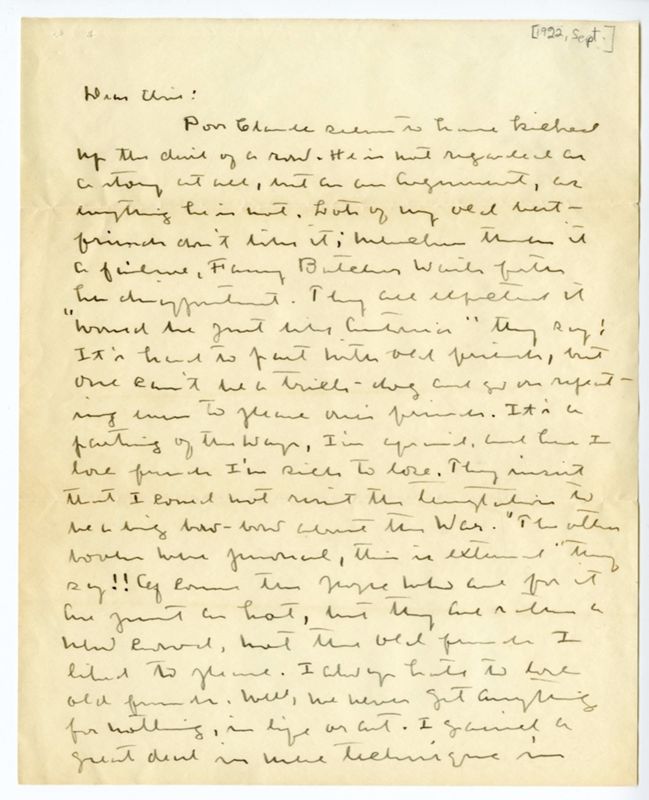 [1922, Sept.]
Dear Elsie:
Poor Claude seems to have kicked
up the devil of a row. He is not regarded as
a story at all, but as an argument, as
everything he is not. Lots of my old best-
friends don't like it; Mencken thinks it
a failure, Fanny Butcher wails for
her disappointment. They all expected it
"would be just like Antonia" they say!
It's hard to part with old friends, but
one can't be a trick-dog and go on repeat-
ing even to please one's friends. It's a
parting of the ways, I'm afraid, and here I
lose friends I'm sick to lose. They insist
that I could not resist the temptation to
be a big bow-wow about the War. "The other
books were personal, this is external" they
say!! Of course the people who are for it
are just as hot, but they are rather a
new crowd, not the old friends I
liked to please. I always hate to lose
old friends. Well, we never get anything
for nothing, in life or art. I gained a
great deal in mere technique in